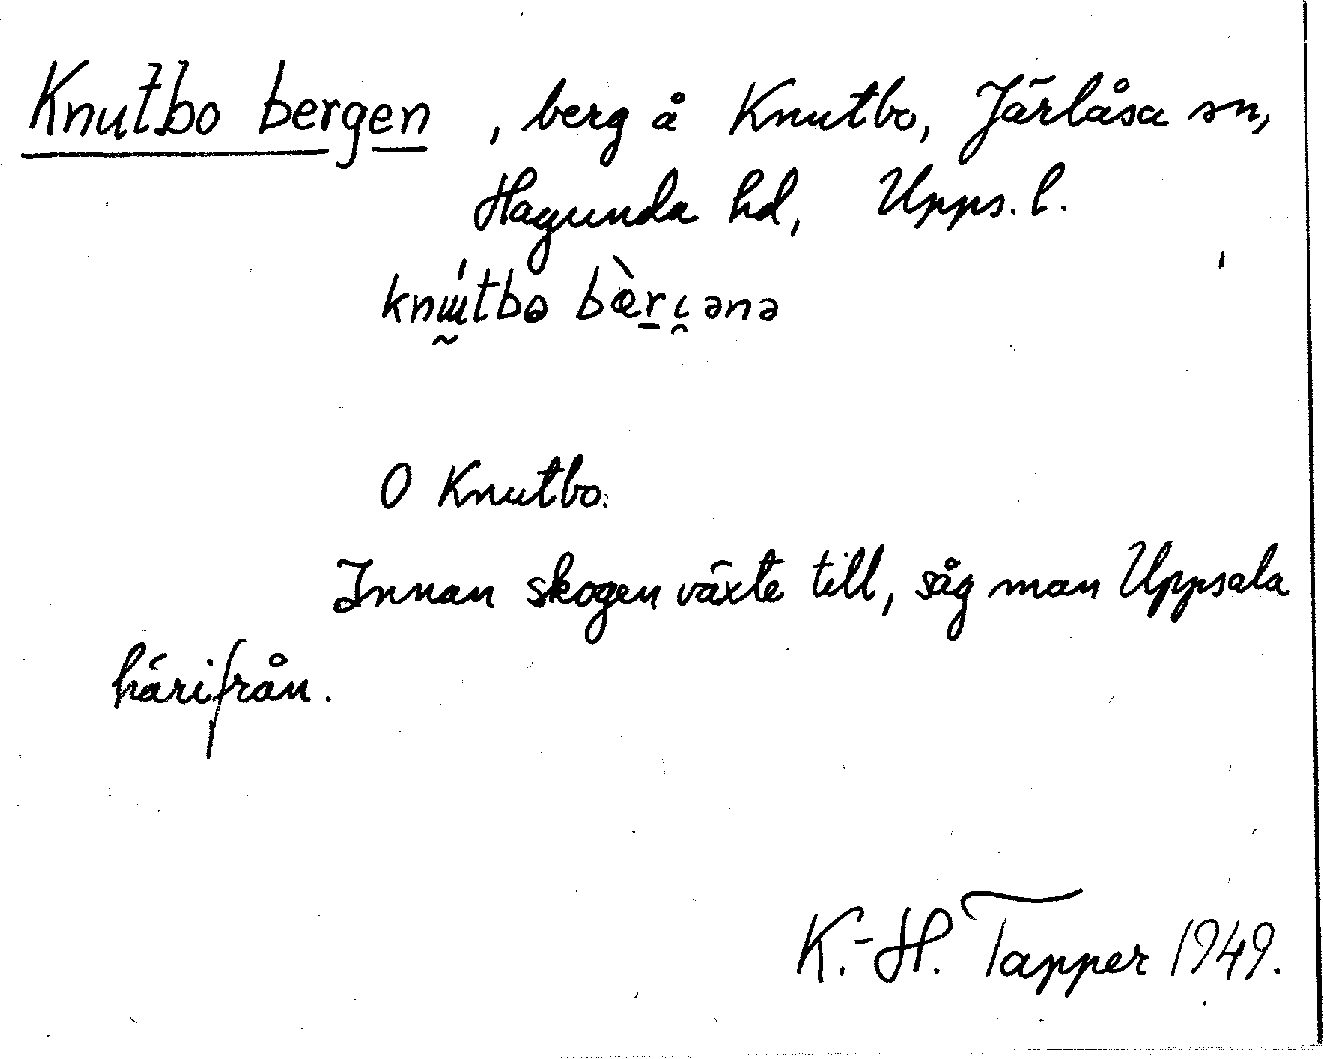 Knutbo bergen, berg å Knutbo, Järlåsa sn,
Hagunda hd, Upps. l.
O Knutbo.
Innan skogen växte till, såg man Uppsala
härifrån.
K.-H. Tapper 1949.